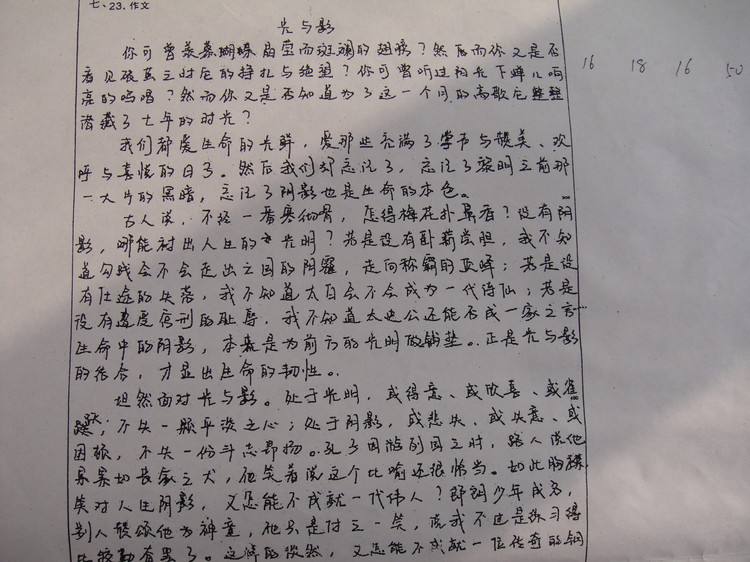 七、23.作文
光与影
你可曾羡慕蝴蝶晶莹而斑斓的翅膀？然后而你又是否
看见破茧之时它的挣扎与绝望？你可曾听过阳光下蝉儿响
亮的鸣唱？然而你又是否知道为了这一个月的高歌它整整
潜藏了七年的时光？
我们都爱生命的光鲜，爱那些充满了掌声与赞美、欢
呼与喜悦的日子。然后我们却忘记了，忘记了黎明之前那
一大片的黑暗，忘记了阴影也是生命的本色。
古人说，不经一番寒彻骨，怎得梅花扑鼻香？没有阴
影，哪能衬出人生的光明？若是没有卧薪尝胆，我不知
道勾践会不会走出亡国的阴霾，走向称霸的巅峰；若是没
有仕途的失落，我不知道太白会不会成为一代诗仙；若是
没有遭受宫刑的耻辱，我不知道太史公还能否成一家之言…
生命中的阴影，本就是为前方的光明做铺垫。正是光与影
的结合，才显出生命的韧性。
坦然面对光与影。处于光明，或得意、或欣喜、或雀
跃，不失一颗平淡之心；处于阴影，或悲失、或失意、或
困顿，不失一份斗志昂扬。孔子周游列国之时，路人说他
惶惶如丧家之犬，他笑着说这个比喻还很恰当。如此胸襟
笑对人生阴影，又怎能不成就一代伟人？郎朗少年成名，
别人赞颂他为神童，他只是付之一笑，说我不过是练习得
比较勤奋罢了。这样的淡然，又怎能不成就一位传奇的钢
16 18 16 50